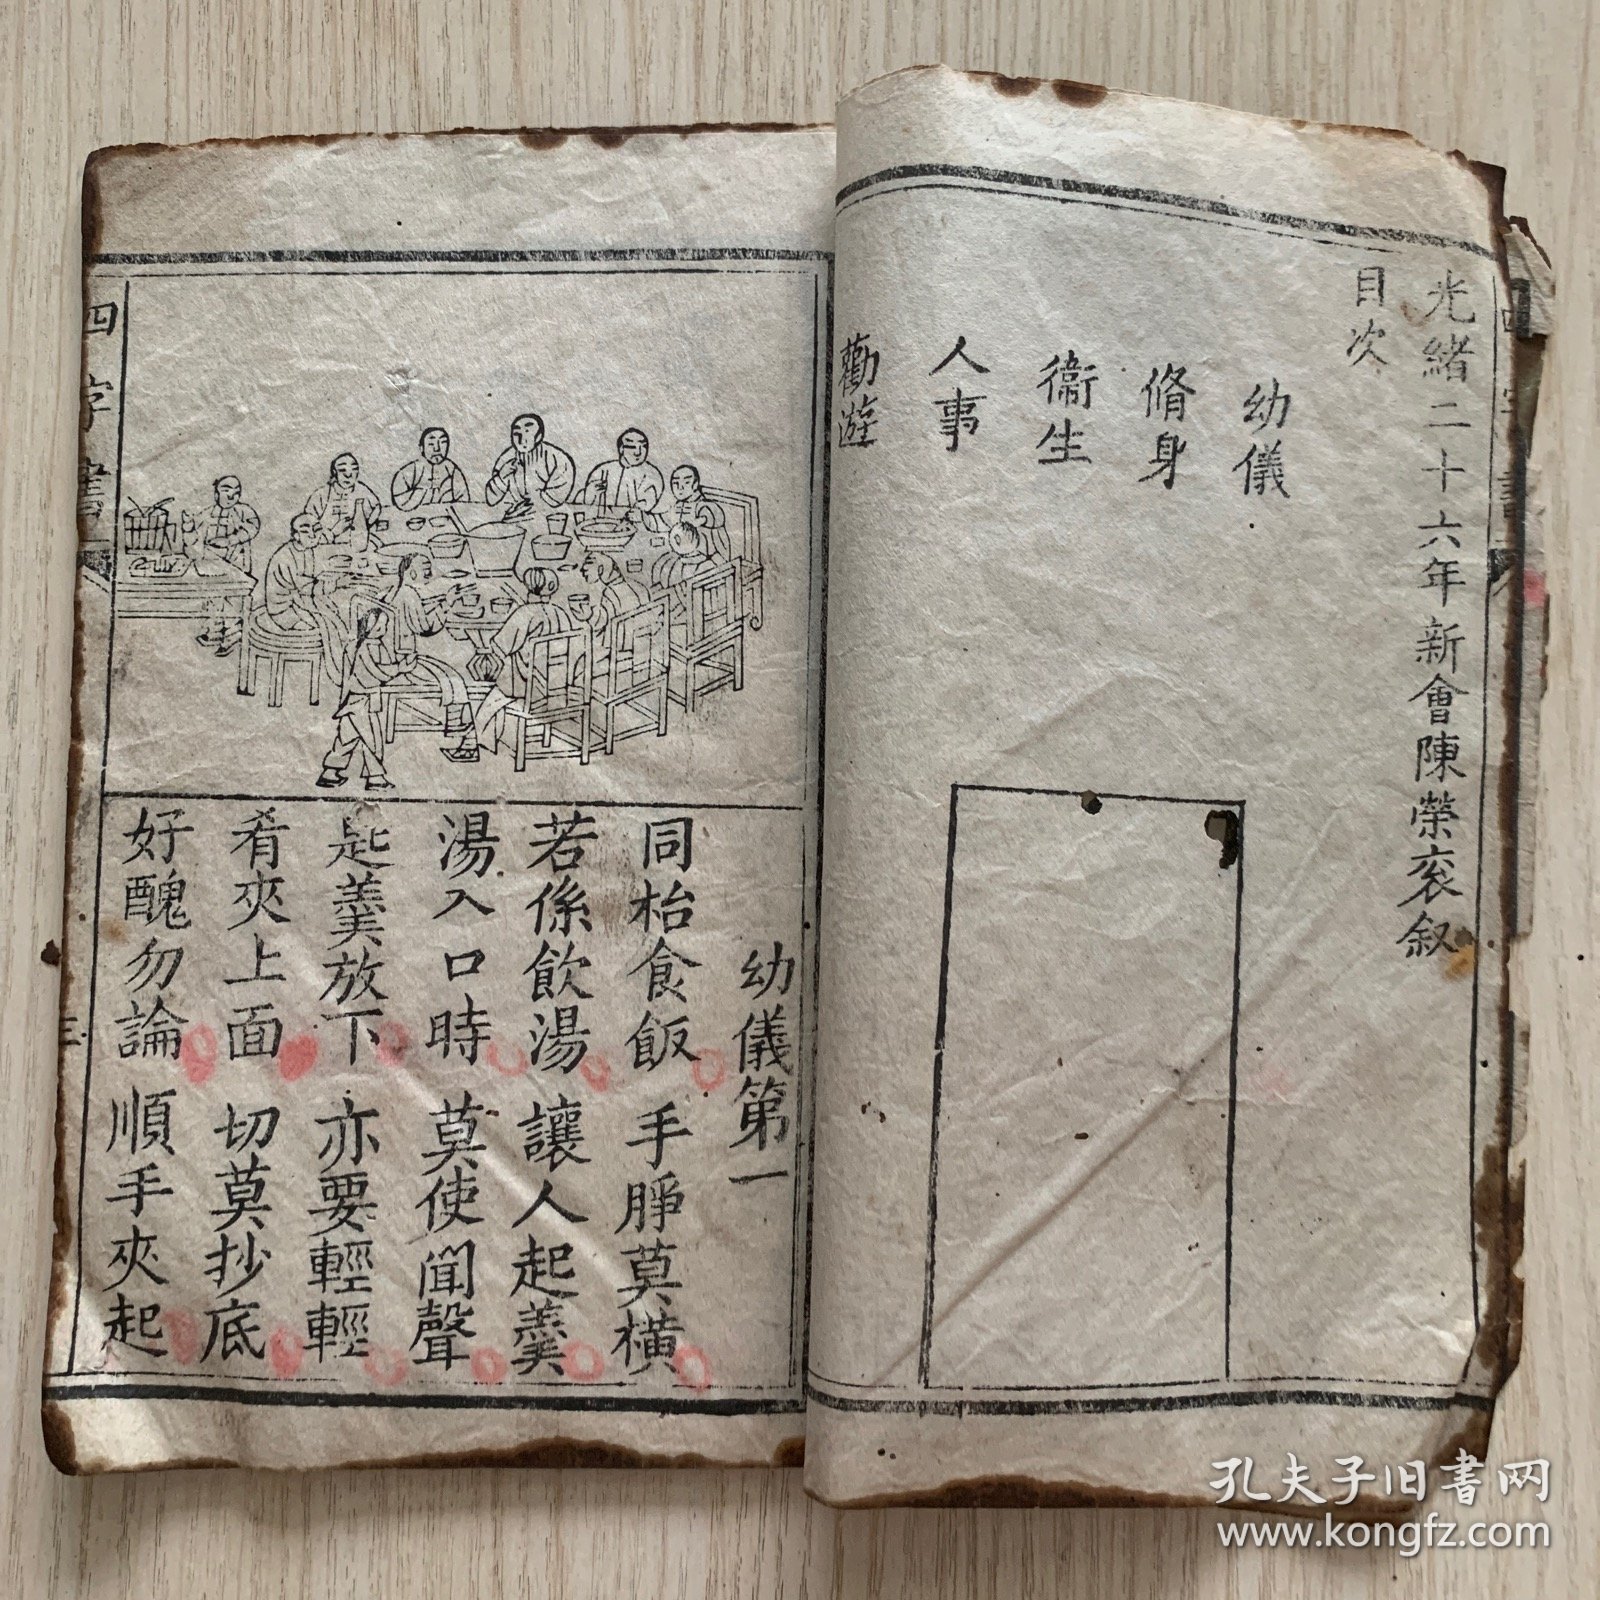 光緒二十六年新會陳榮衮叙
目次
幼儀
脩身
衞生
人事
勸遊
幼儀第一
同枱食飯 手睜莫橫
若係飲湯 讓人起羹
湯入口時 莫使聞聲
匙羹放下 亦要輕輕
肴夾上面 切莫抄底
好醜勿論 順手夾起
四字書
三
孔夫子旧书网
www.kongfz.com